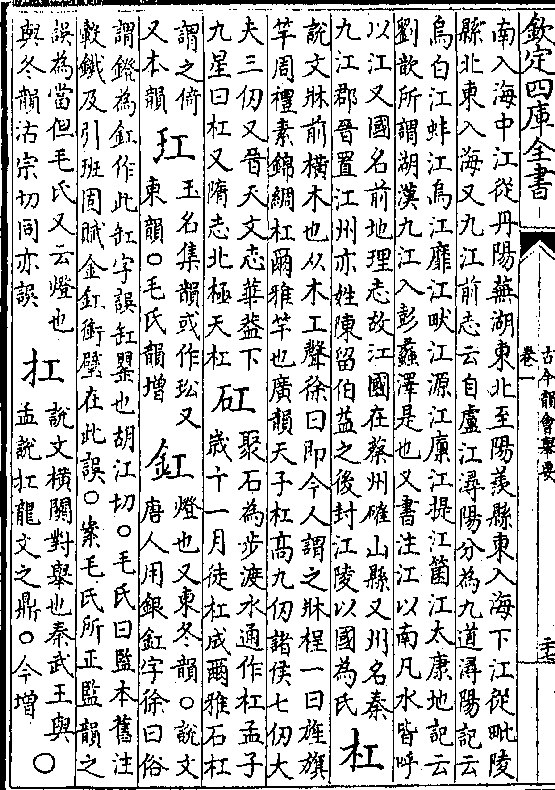 欽定四庫全書
古今韻會舉要
卷一
二十七
南入海中江從丹陽蕪湖東北至陽羨縣東入海下江從毗陵
縣北東入海又九江前志云自廬江潯陽分為九道潯陽記云
烏白江蚌江烏江靡江畎江源江廩江提江箇江太康地記云
劉歆所謂湖漢九江入彭蠡澤是也又書注江以南凡水皆呼
以江又國名前地理志故江國在蔡州確山縣又州名秦
九江郡晉置江州亦姓陳留伯益之後封江陵以國為氏 杠
說文牀前橫木也从木工聲徐曰即今人謂之牀桯一曰旌旗
竿周禮素錦綢杠爾雅竿也廣韻天子杠高九仞諸侯七仞大
夫三仞又晉天文志華蓋下
九星曰杠又隋志北極天杠 矼 聚石為步渡水通作杠孟子
歲十一月徒杠成爾雅石杠
謂之倚
又本韻 玒 玉名集韻或作𤣻又
東韻○毛氏韻增 釭 燈也又東冬韻○說文
唐人用銀釭字徐曰俗
謂鐙為釭作此缸字誤缸罌也胡江切○毛氏曰監本舊注
轂鐵及引班固賦金釭銜璧在此誤○案毛氏所正監韻之
誤為當但毛氏又云燈也
與冬韻沽宗切同亦誤 扛 說文橫關對舉也秦武王與
孟說扛龍文之鼎○今增 ○